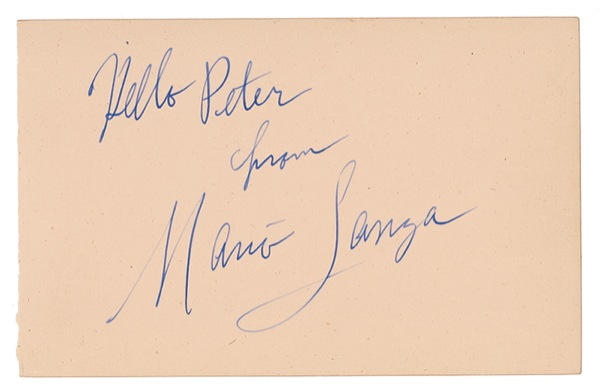 Hello Peter
from
Mario Lanza